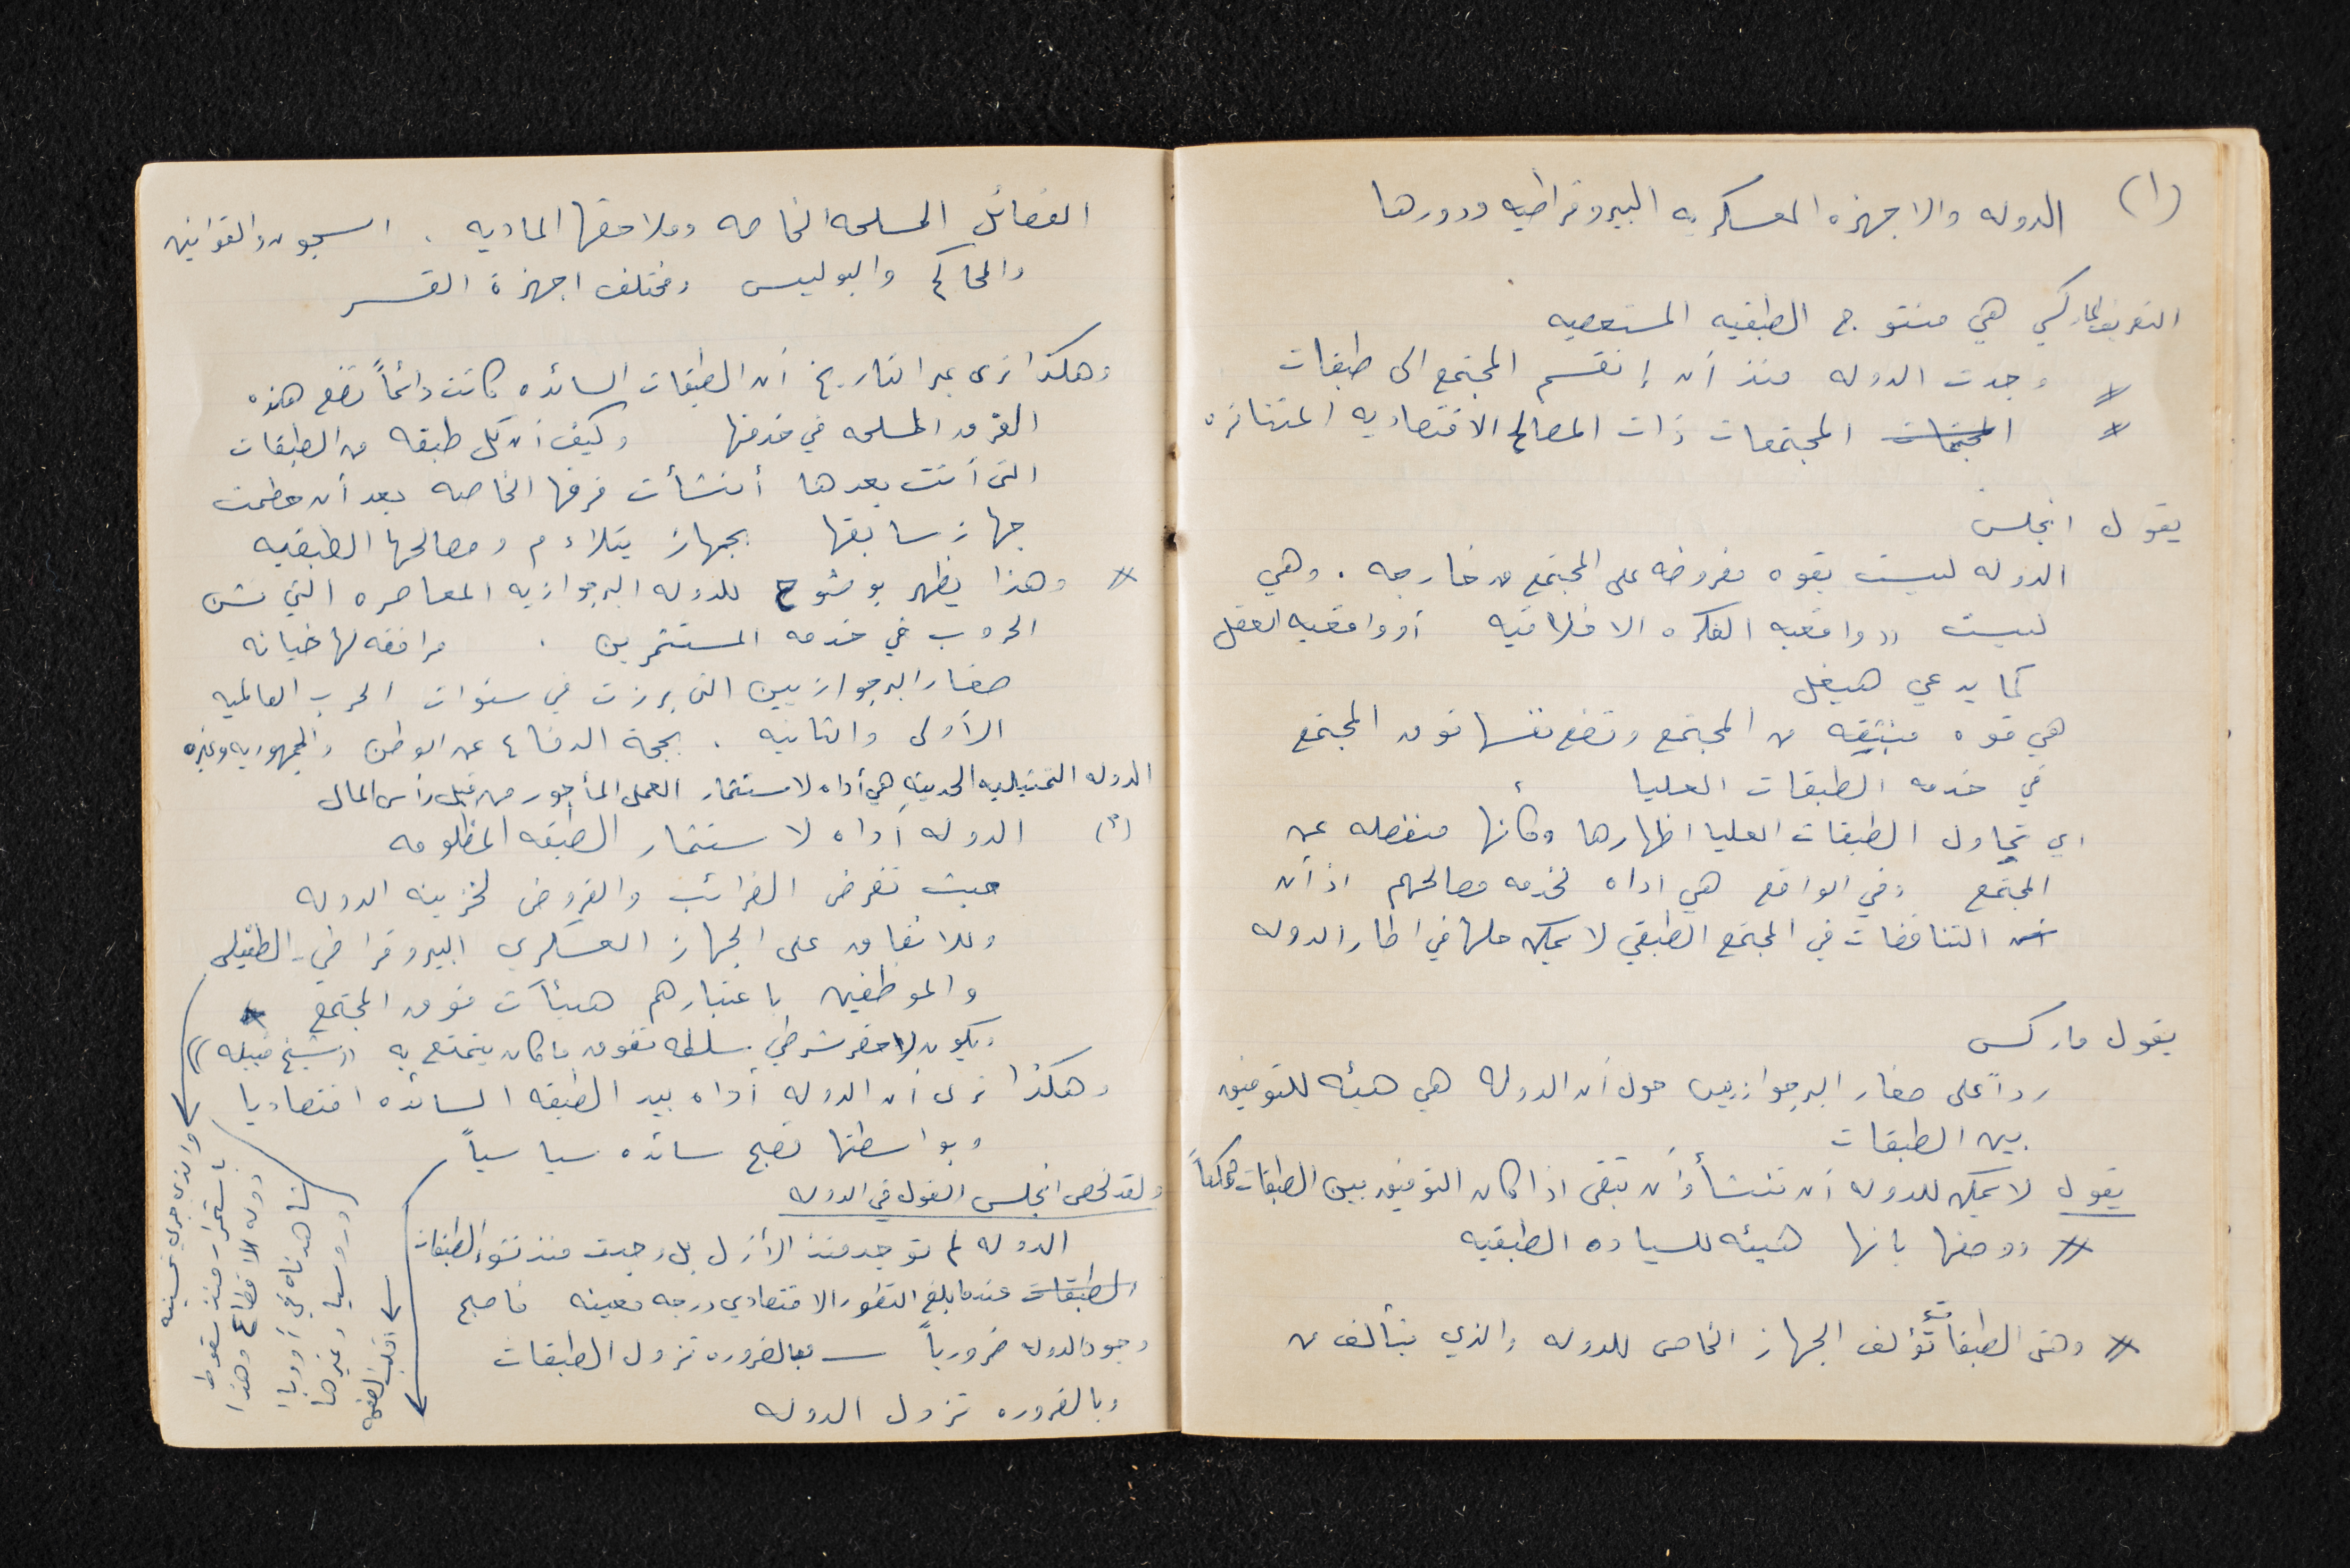 (١) الدوله والاجهزه العسكريه البيروقراطيه ودورها
التعريف الماركسي هي منتوج الطبقيه المستعصيه
وجدت الدوله منذ أن إنقسم المجتمع الى طبقات
المجتمعات المجتمعات ذات المصالح الاقتصاديه المتنافره
يقول انجلس
الدوله ليست بقوه مفروضه على المجتمع من خارجه . وهي
ليست "واقعيه الفكره الاخلاقيه أو واقعيه العقل
كما يدعي هيغل
هي قوه منبثقه من المجتمع وتضع نفسها فوق المجتمع
في خدمه الطبقات العليا
اي تحاول الطبقات العليا اظهارها وكأنها منفصله عن
المجتمع وفي الواقع هي اداه لخدمه مصالحهم اذ أن
التناقضات في المجتمع الطبقي لا يمكن حلها في اطار الدوله
يقول ماركس
رداً على صغار البرجوازيين حول أن الدوله هي هيئه للتوفيق
بين الطبقات
يقول لا يمكن للدوله أن تنشأ وأن تبقى اذا كان التوفيق بين الطبقات ممكناً
ووصفها بانها هيئه للسياده الطبقيه
وهذه الطبقات تؤلف الجهاز الخاص للدوله والذي يتألف من
الفصائل المسلحه الخاصه وملاحقها الماديه . السجون والقوانين
والمحاكم والبوليس ومختلف اجهزة القسر
وهكذا نرى عبر التاريخ أن الطبقات السائده كانت دائماً تضع هذه
الفرق المسلحه في خدمتها وكيف أن كل طبقه من الطبقات
التي أتت بعدها أنشأت فرقها الخاصه بعد أن حطمت
جهاز سابقها بجهاز يتلاءم ومصالحها الطبقيه
وهذا يظهر بوضوح للدوله البرجوازيه المعاصره التي تشن
الحروب في خدمه المستثمرين . مرافقه لها خيانه
صغار البرجوازيين التي برزت في سنوات الحرب العالميه
الأولى والثانيه . بحجة الدفاع عن الوطن والجمهوريه وغيره
الدوله التمثيليه الحديثه هي أداه لاستثمار العمل المأجور من قبل رأس المال
(٣) الدوله أداه لاستثمار الطبقه المظلومه
حيث تفرض الضرائب والقروض لخزينه الدوله
وللانفاق على الجهاز العسكري البيروقراطي - الطفيلي
والموظفين باعتبارهم هيئآت فوق المجتمع
ويكون لاحقر شرطي سلطه تفوق ما كان يتمتع به "شيخ قبيله"
وهكذا نرى أن الدوله أداه بيد الطبقه السائده اقتصاديا
وبواسطتها تصبح سائده سياسياً
ولقد لخص انجلس القول في الدوله
الدوله لم توجد منذ الأزل بل وجدت منذ نشوء الطبقات
الطبقات عندما بلغ التطور الاقتصادي درجه معينه فاصبح
وجود الدوله ضرورياً — فبالضروره تزول الطبقات
وبالضروره تزول الدوله
والذي جرى تحسينه
باستمرار منذ سقوط
دوله الاقطاع وهذا
شاهدناه في أوروبا
وروسيا وغيرها
اقلب الصفحه